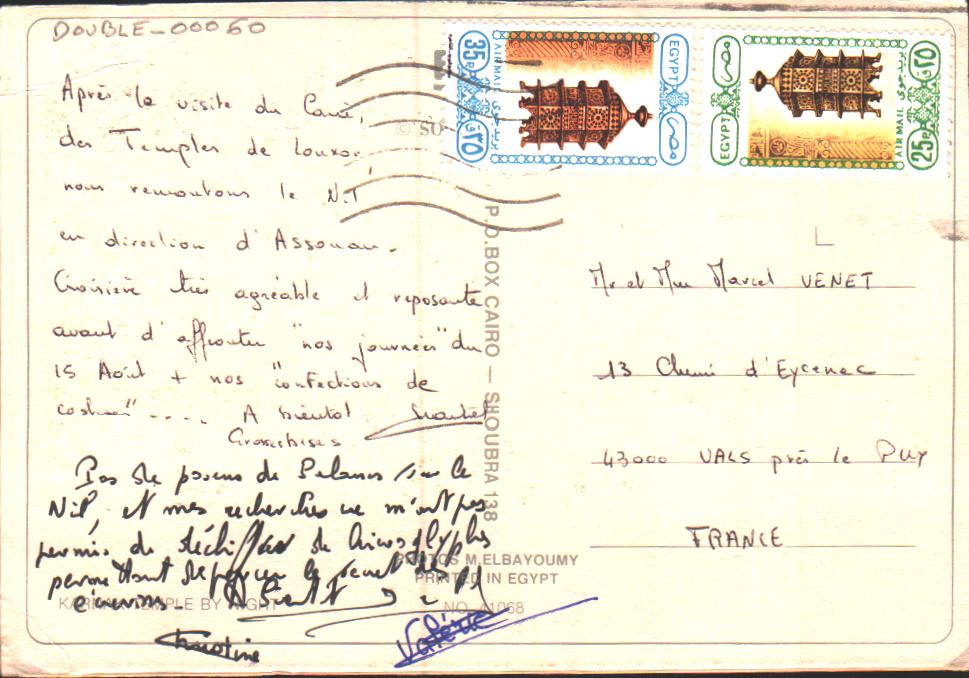 DOUBLE-00060
Après la visite du Caire,
des Temples de Louxor
nous remontons le Nil
en direction d'Assouan.
Croisière très agréable et reposante
avant d'affronter "nos journées" du
15 Août + nos "confections de
costumes" .... A bientôt
Grosses bises
Pas de poissons de sur le
Nil, et mes recherches ne m'ont pas
permis de déchiffrer de hiéroglyphes
permettant de percer le secret des
écrevisses. A Bientôt
Christine
Valérie
35 P
AIR MAIL
بريد جوى
٣٥
EGYPT
مصر
EGYPT
مصر
٢٥
بريد جوى
AIR MAIL
25 P
L
Mr et Mme Marcel VENET
13 Chemin d'Eycenac
43000 VALS près le PUY
FRANCE
P.O.BOX CAIRO — SHOUBRA 138
PHOTOS M.ELBAYOUMY
PRINTED IN EGYPT
KARNAK TEMPLE BY NIGHT
NO. 41068